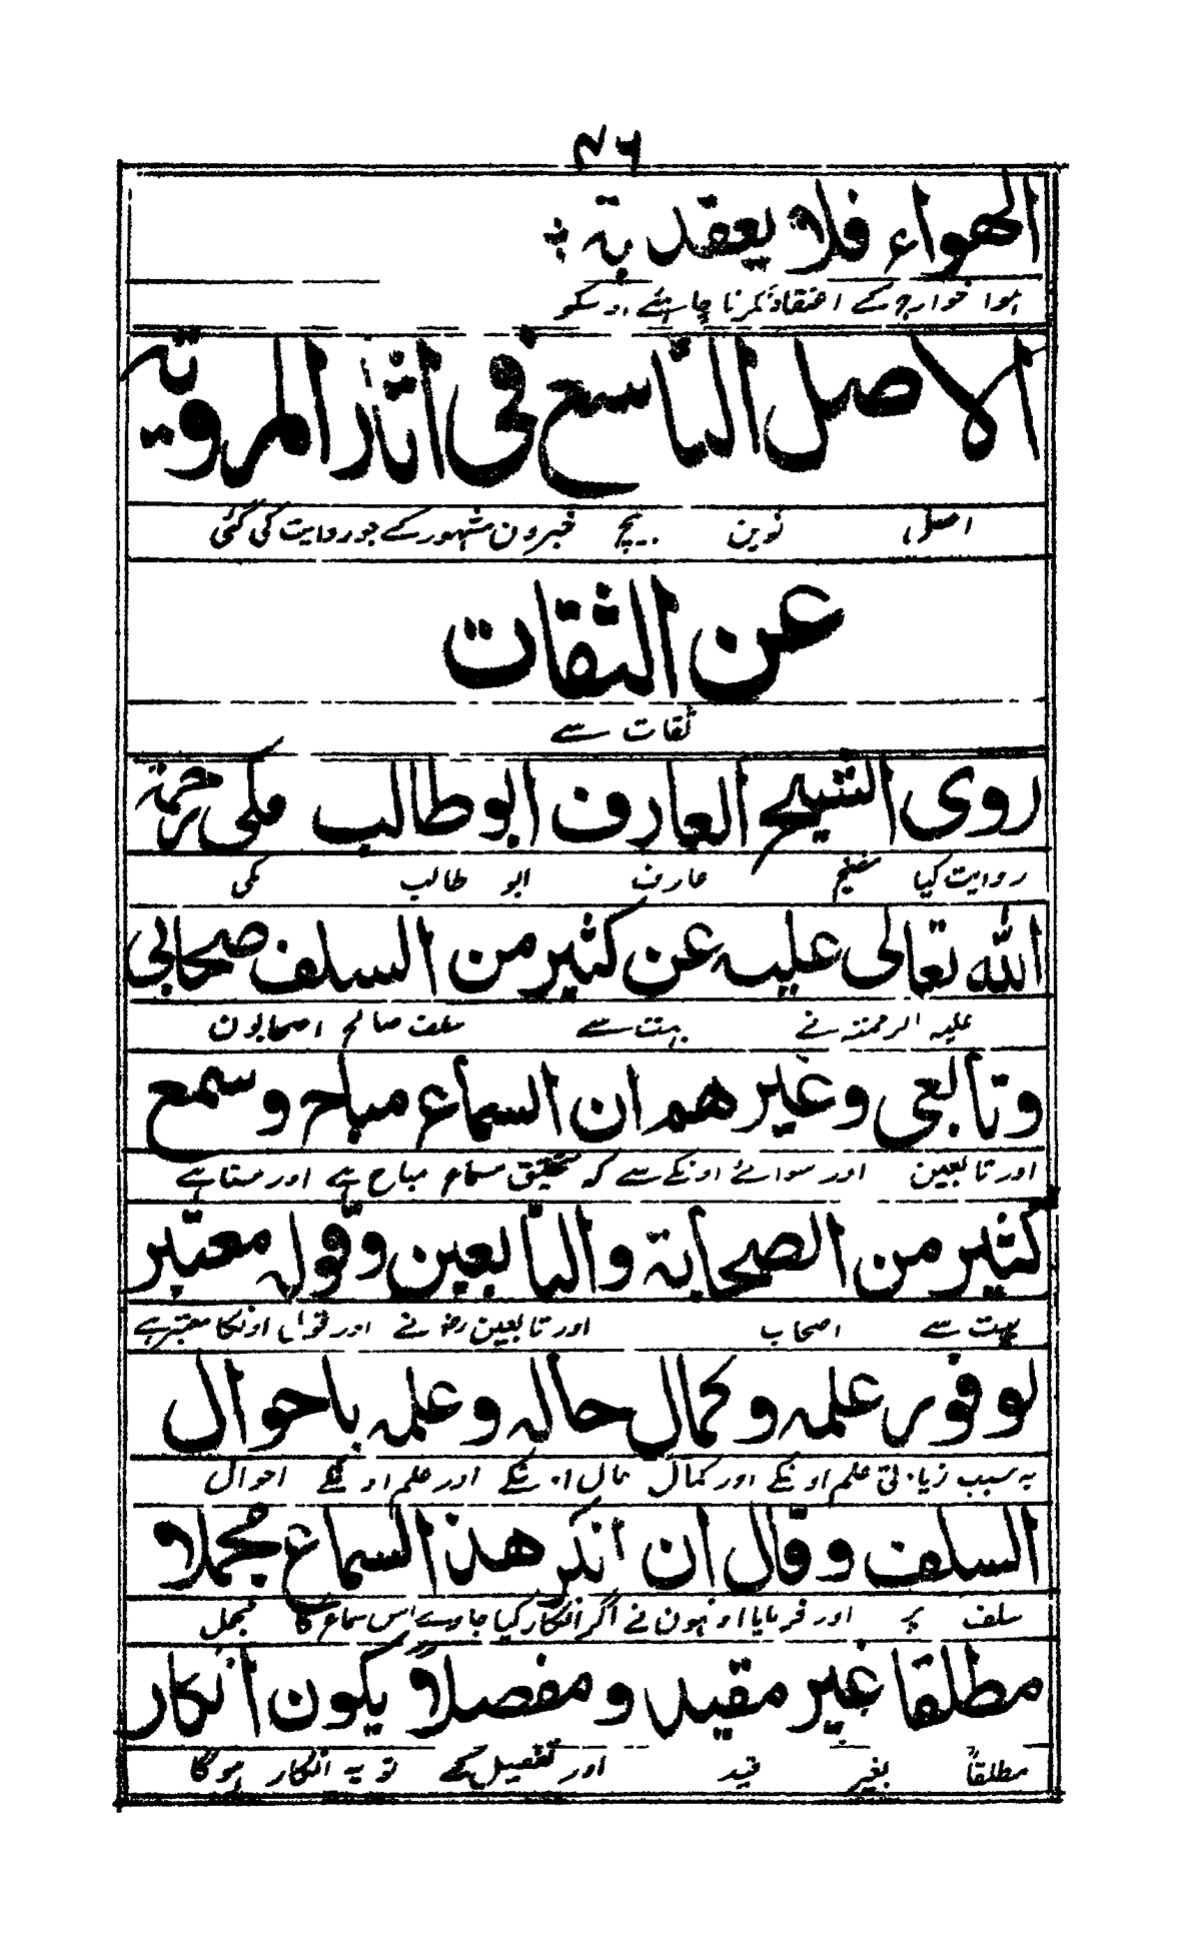 ۴۶
الهواء فلا يعقد بة ؛
ہوا خوارج کے اعتقاد نکرنا چاہئے اوسکو
الاصل التاسع فی اٰثار المرویة
اصل نوین بیچ خبرون مشہور کے جو روایت کی گئی
عن الثقات
ثقات سے
روی الشیخ العارف ابو طالب مکی رحمة
روایت کیا شیخ عارف ابو طالب مکی
الله تعالی علیه عن کثیر من السلف صحابی
علیہ الرحمتہ نے بہت سے سلف صالح اصحابون
وتابعی وغیر هم ان السماع مباح وسمع
اور تابعین اور سوائے اونکے سے کہ تحقیق سماع مباح ہے اور سنا ہے
کثیر من الصحابة والتابعین وقوله معتبر
بہت سے اصحاب اور تابعین رضہ نے اور قول اونکا معتبر ہے
لوفور علمه وکمال حاله وعلمه باحوال
بہ سبب زیادتی علم اونکے اور کمال حال اونکے اور علم اونکے احوال
السلف وقال ان انکر هذ السماع مجملا
سلف پر اور فرمایا اونہون نے اگر انکار کیا جاوے اس سماع کا مجمل
مطلقا غیر مقید ومفصلاً یکون انکار
مطلقاً بغیر قید اور تفصیل کے تو یہ انکار ہوگا